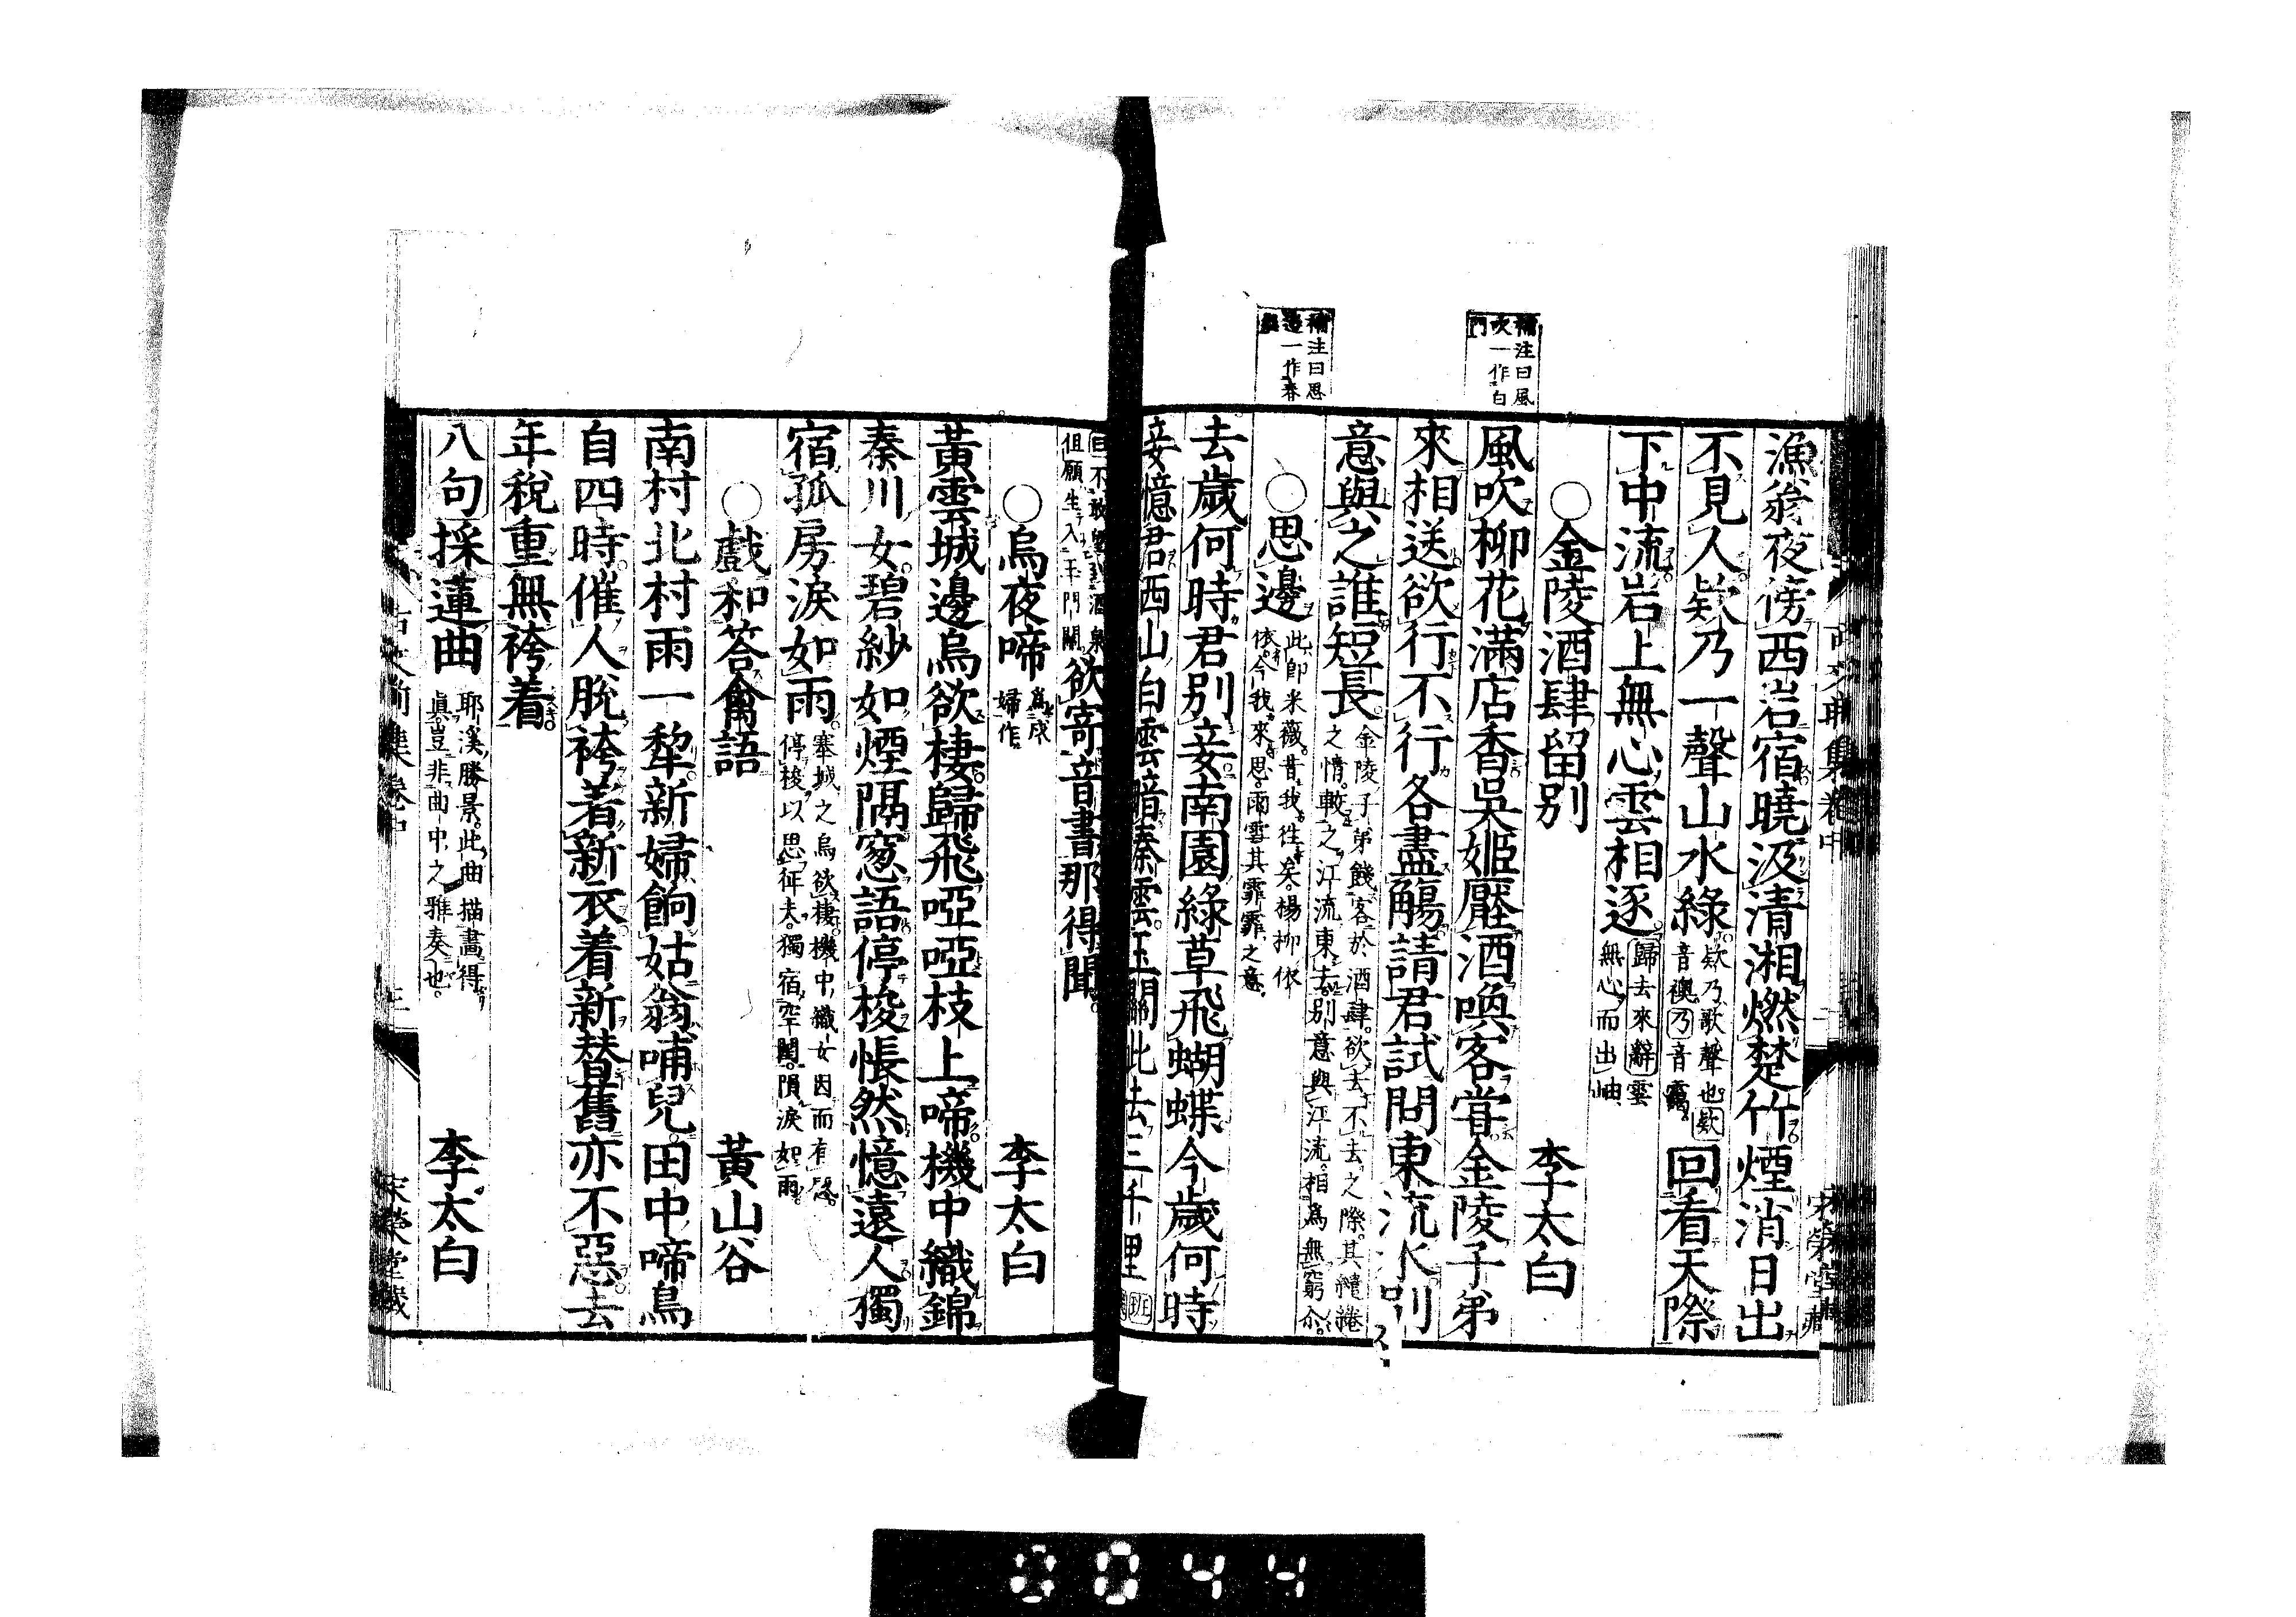 補注曰風
吹一作白
門
補注曰思
邊一作春
漁翁夜傍西岩宿曉汲清湘燃楚竹煙消日出
不見人欸乃一聲山水綠欸乃歌聲也欸音襖乃音靄回看天際
下中流岩上無心雲相逐歸去來辭雲無心而出岫
○金陵酒肆留別 李太白
風吹柳花滿店香吳姬壓酒喚客嘗金陵子弟
來相送欲行不行各盡觴請君試問東流水別
意與之誰短長金陵子弟餞客於酒肆欲去不去之際其繾綣之情較之江流東去別意與江流相爲無窮尒
○思邊此卽采薇昔我徃矣楊柳依依今我來思雨雪其霏霏之意
去歲何時君別妾南園綠草飛蝴蝶今歲何時
妾憶君西山白雲暗秦雲玉關此去三千里
曰不敢望到酒泉但願生入玉門關欲寄音書那得聞
○烏夜啼爲戍婦作 李太白
黃雲城邊烏欲棲歸飛啞啞枝上啼機中織錦
秦川女碧紗如煙隔窓語停梭悵然憶遠人獨
宿孤房淚如雨塞城之烏欲棲機中織女因而有感停梭以思征夫獨宿空閨隕淚如雨
○戲和答禽語 黃山谷
南村北村雨一犂新婦餉姑翁哺兒田中啼鳥
自四時催人脫袴着新衣着新替舊亦不惡去
年稅重無袴着
八句採蓮曲耶溪勝景此曲描畵得眞豈非曲中之雅奏也 李太白
宋榮堂藏